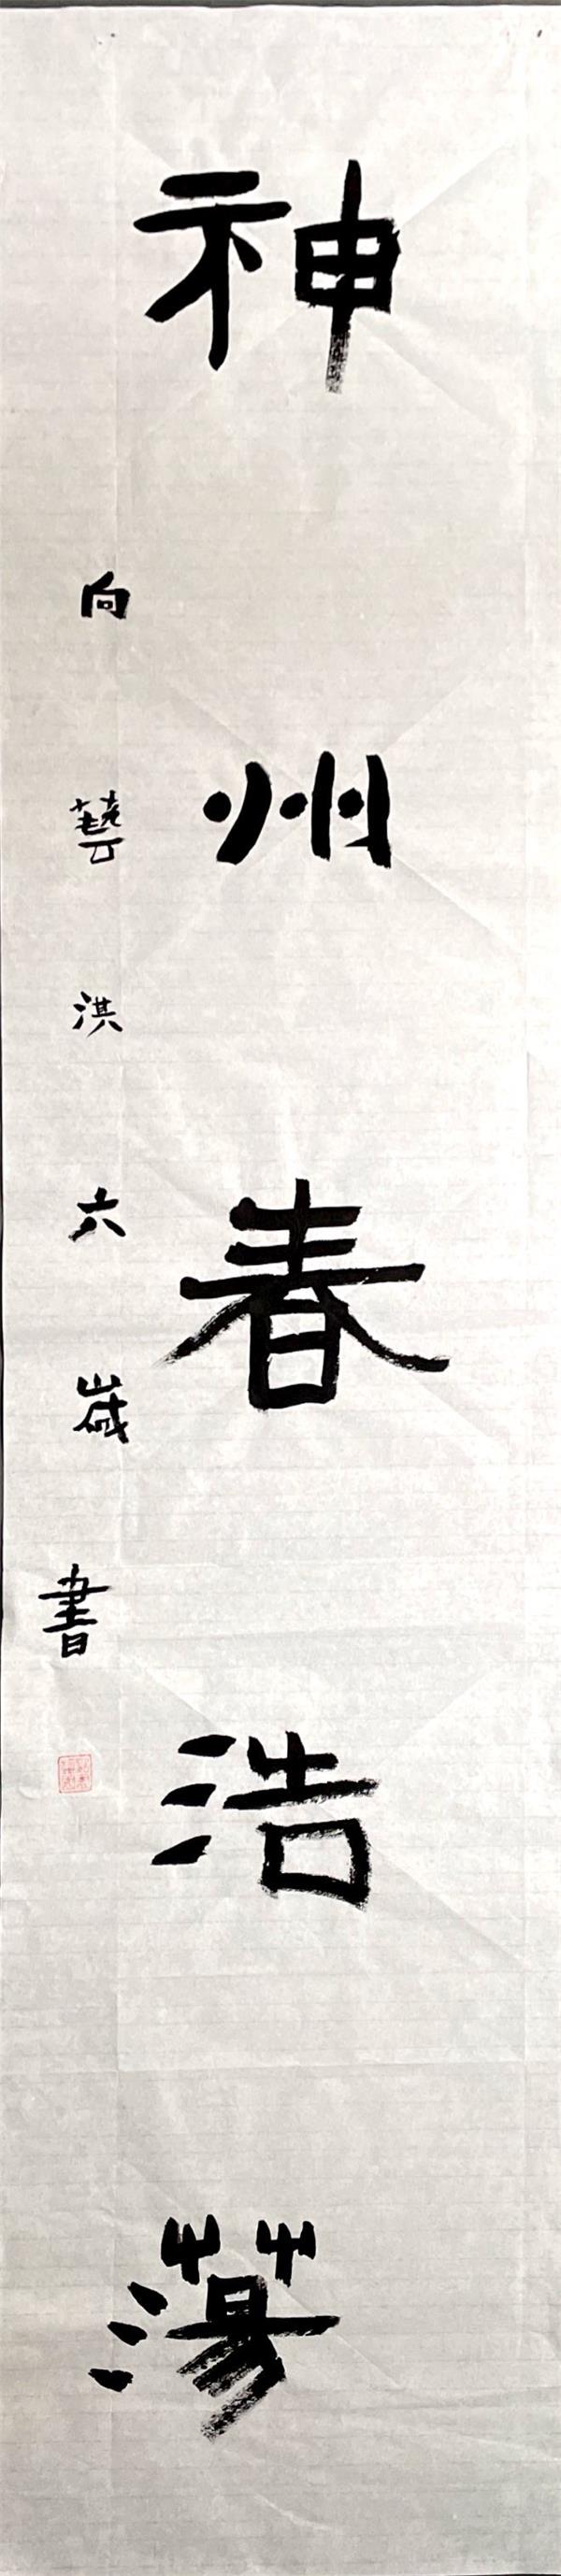 神州春浩蕩
向藝洪六歲書